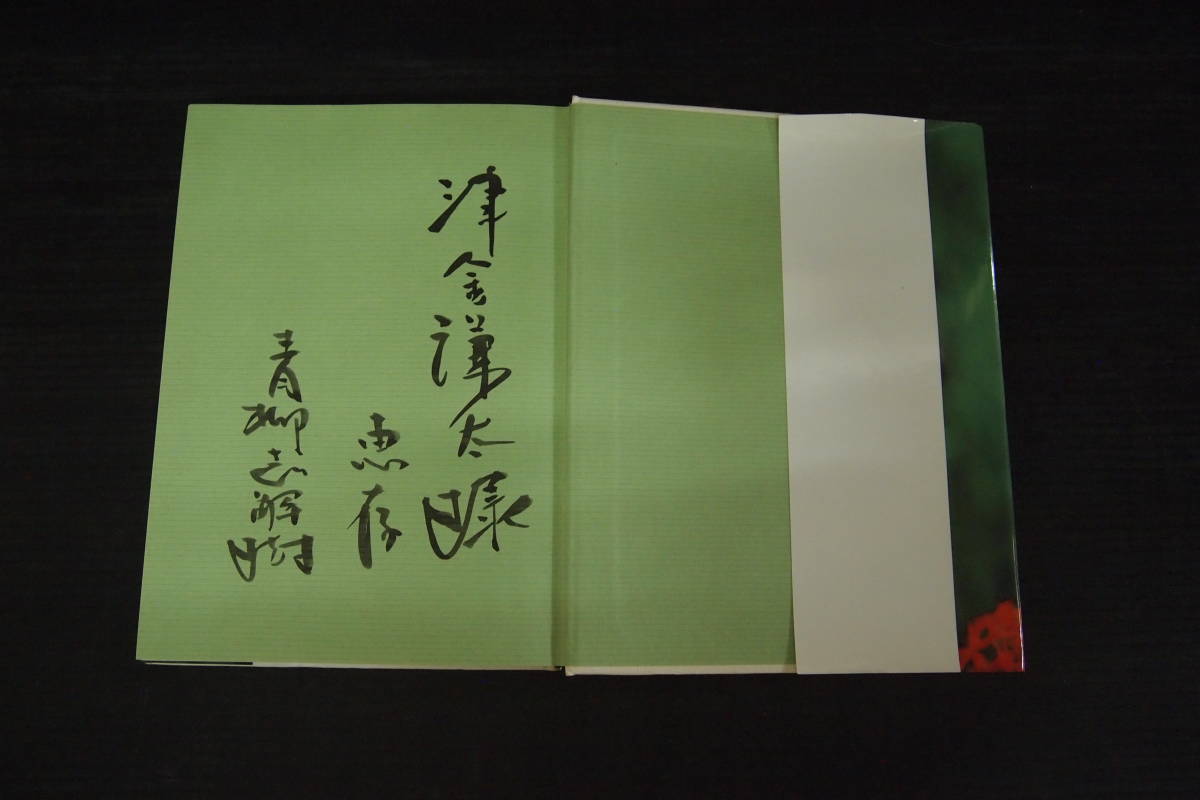 津金謙太様
恵存
青柳志解樹